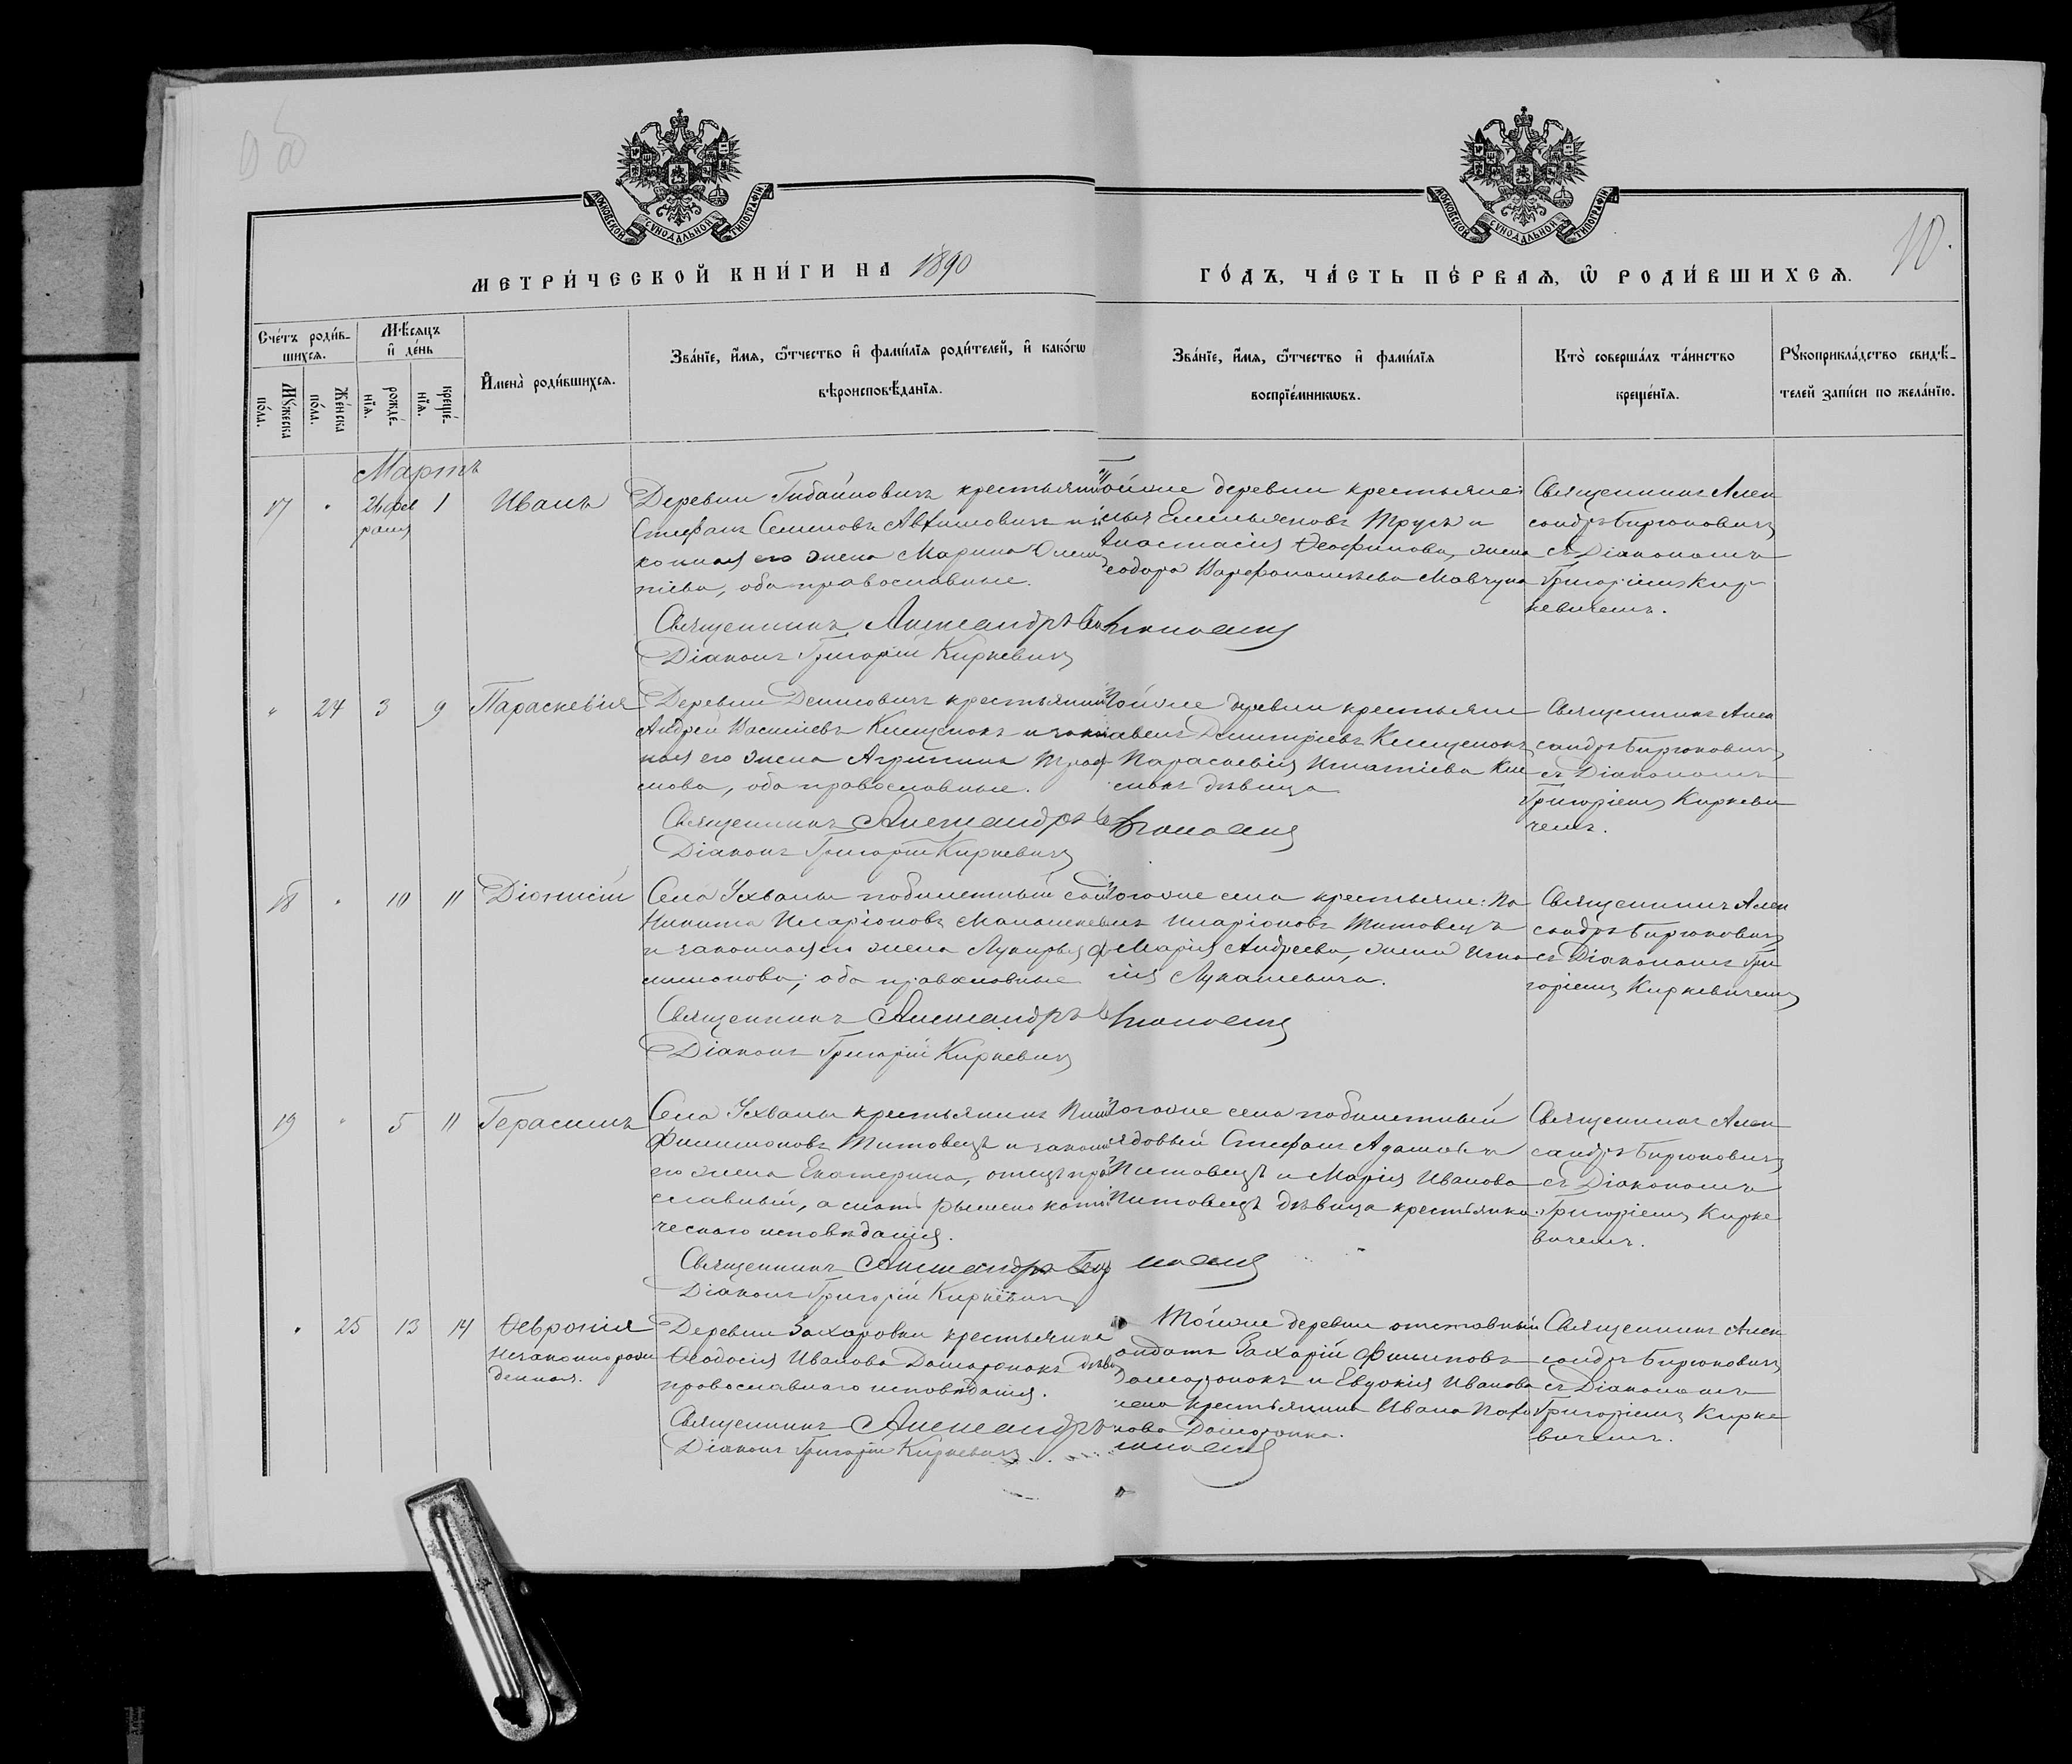 МОСКОВСКОЙ СѴНОДАЛЬНОЙ ТИПОГРАФІИ
МОСКОВСКОЙ СѴНОДАЛЬНОЙ ТИПОГРАФІИ
10.
МЕТРИ́ЧЕСКОЙ КНИ́ГИ НА 1890
ГО́ДЪ, ЧА́СТЬ ПЕ́РВАѦ, Ѡ҆ РОДИ́ВШИХСѦ.
Сче́тъ роди́в-
шихсѧ.
Мꙋ́жеска по́ла.
Же́нска по́ла.
Мѣ́сѧцъ
и҆ де́нь
рожде́-
нїѧ.
креще́-
нїѧ.
И҆мена̀ роди́вшихсѧ.
Зва́нїе, и҆́мѧ, ѻ҆́тчество и҆ фами́лїѧ роди́телей, и҆ како́гѡ
вѣроисповѣ́данїѧ.
Зва́нїе, и҆́мѧ, ѻ҆́тчество и҆ фами́лїѧ
воспрїе́мникѡвъ.
Кто̀ соверша́лъ та́инство
креще́нїѧ.
Рꙋкоприкла́дство свидѣ́-
телей за́писи по жела́нїю.
Мартъ
17 " 26 фев
раля 1 Иванъ
Деревни Гибайловичъ крестьянин
Стефанъ Семеновъ Авхимовичъ и за
конная его жена Марина
тіева, оба православные.
Священникъ Александръ
Діаконъ Григорій Киркевичъ
Тойже деревни крестьяне:
Емельяновъ Трусъ и
Анастасія Ѳеофилова, жена
Ѳеодора Варфоломеева Мавчуна
Священникъ Алек
сандръ Бирюковичъ
съ Діакономъ
Григоріемъ Кир
кевичемъ.
" 24 3 9 Параскевія
Деревни Денисовичъ крестьянин
Андрей Васильевъ Клещенокъ и закон
ная его жена Агрипина Троф
мова, оба православные.
Священникъ Александръ
Діаконъ Григорій Киркевичъ
Тойже деревни крестьяне
Димитріевъ Клещенокъ
Параскевія Игнатіева Кле
енокъ дѣвица
Священникъ Алек
сандръ Бирюковичъ
съ Діакономъ
Григоріемъ Киркеви
чемъ.
18 " 10 11 Діонисій
Села Ухвалы побилетный сол
Никита Иларіоновъ Малашкевичъ
и законная его жена Лукирья Ф
лимонова, оба православные
Священникъ Александръ
Діаконъ Григорій Киркевичъ
Тогоже села крестьяне:
Иларіоновъ Титовецъ
Марія Андреева, жена Игна
ія Лукашевича.
Священникъ Алек
сандръ Бирюковичъ
съ Діакономъ Гри
горіемъ Киркевичемъ
19 " 5 11 Герасимъ
Села Ухвалы крестьянинъ
Филимоновъ Титовецъ и закон
его жена Екатерина, отецъ пра
славный, а мать римско като
ческаго исповѣданія.
Священникъ Александръ
Діаконъ Григорій Киркевичъ
Тогоже села побилетный
рядовый Стефанъ Адамовъ
Титовецъ и Марія Иванова
Титовецъ дѣвица крестьянка
Священникъ Алек
сандръ Бирюковичъ
съ Діакономъ
Григоріемъ Кирке
вичемъ.
" 25 13 14 Ѳевронія
Незаконно рож
денная.
Деревни Захаровки крестьянка
Ѳеодосія Иванова Доморонокъ дѣв
православнаго исповѣданія.
Священникъ Александръ
Діаконъ Григорій Киркевичъ
Тойже деревни отставный
олдатъ Захарій Филиповъ
Доморонокъ и Евдокія Иванова
жена крестьянина Ивана
Доморонка.
Священникъ Алек
сандръ Бирюковичъ
съ Діакономъ
Григоріемъ Кирке
вичемъ.